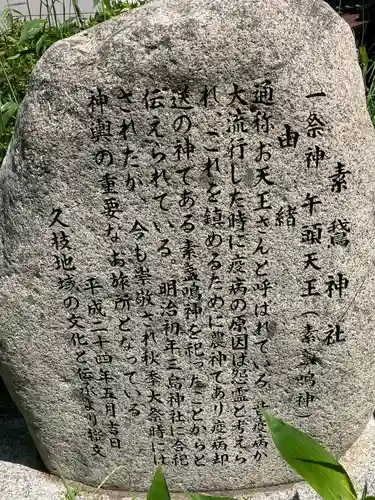 素鵞神社
一祭神 午頭天王（素盞鳴神）
由緒
通称お天王さんと呼ばれている 古疫病か
大流行した時に疫病の原因は怨霊と考えら
れ、これを鎮めるために農神であり疫病却
送の神である素盞鳴神を祀ったことからと
伝えられている 明治初年三島神社に合祀
されたが、今も崇敬され秋季大祭時には
神輿の重要なお旅所となっている
平成二十四年五月吉日
久枝地域の文化と伝承より撥文